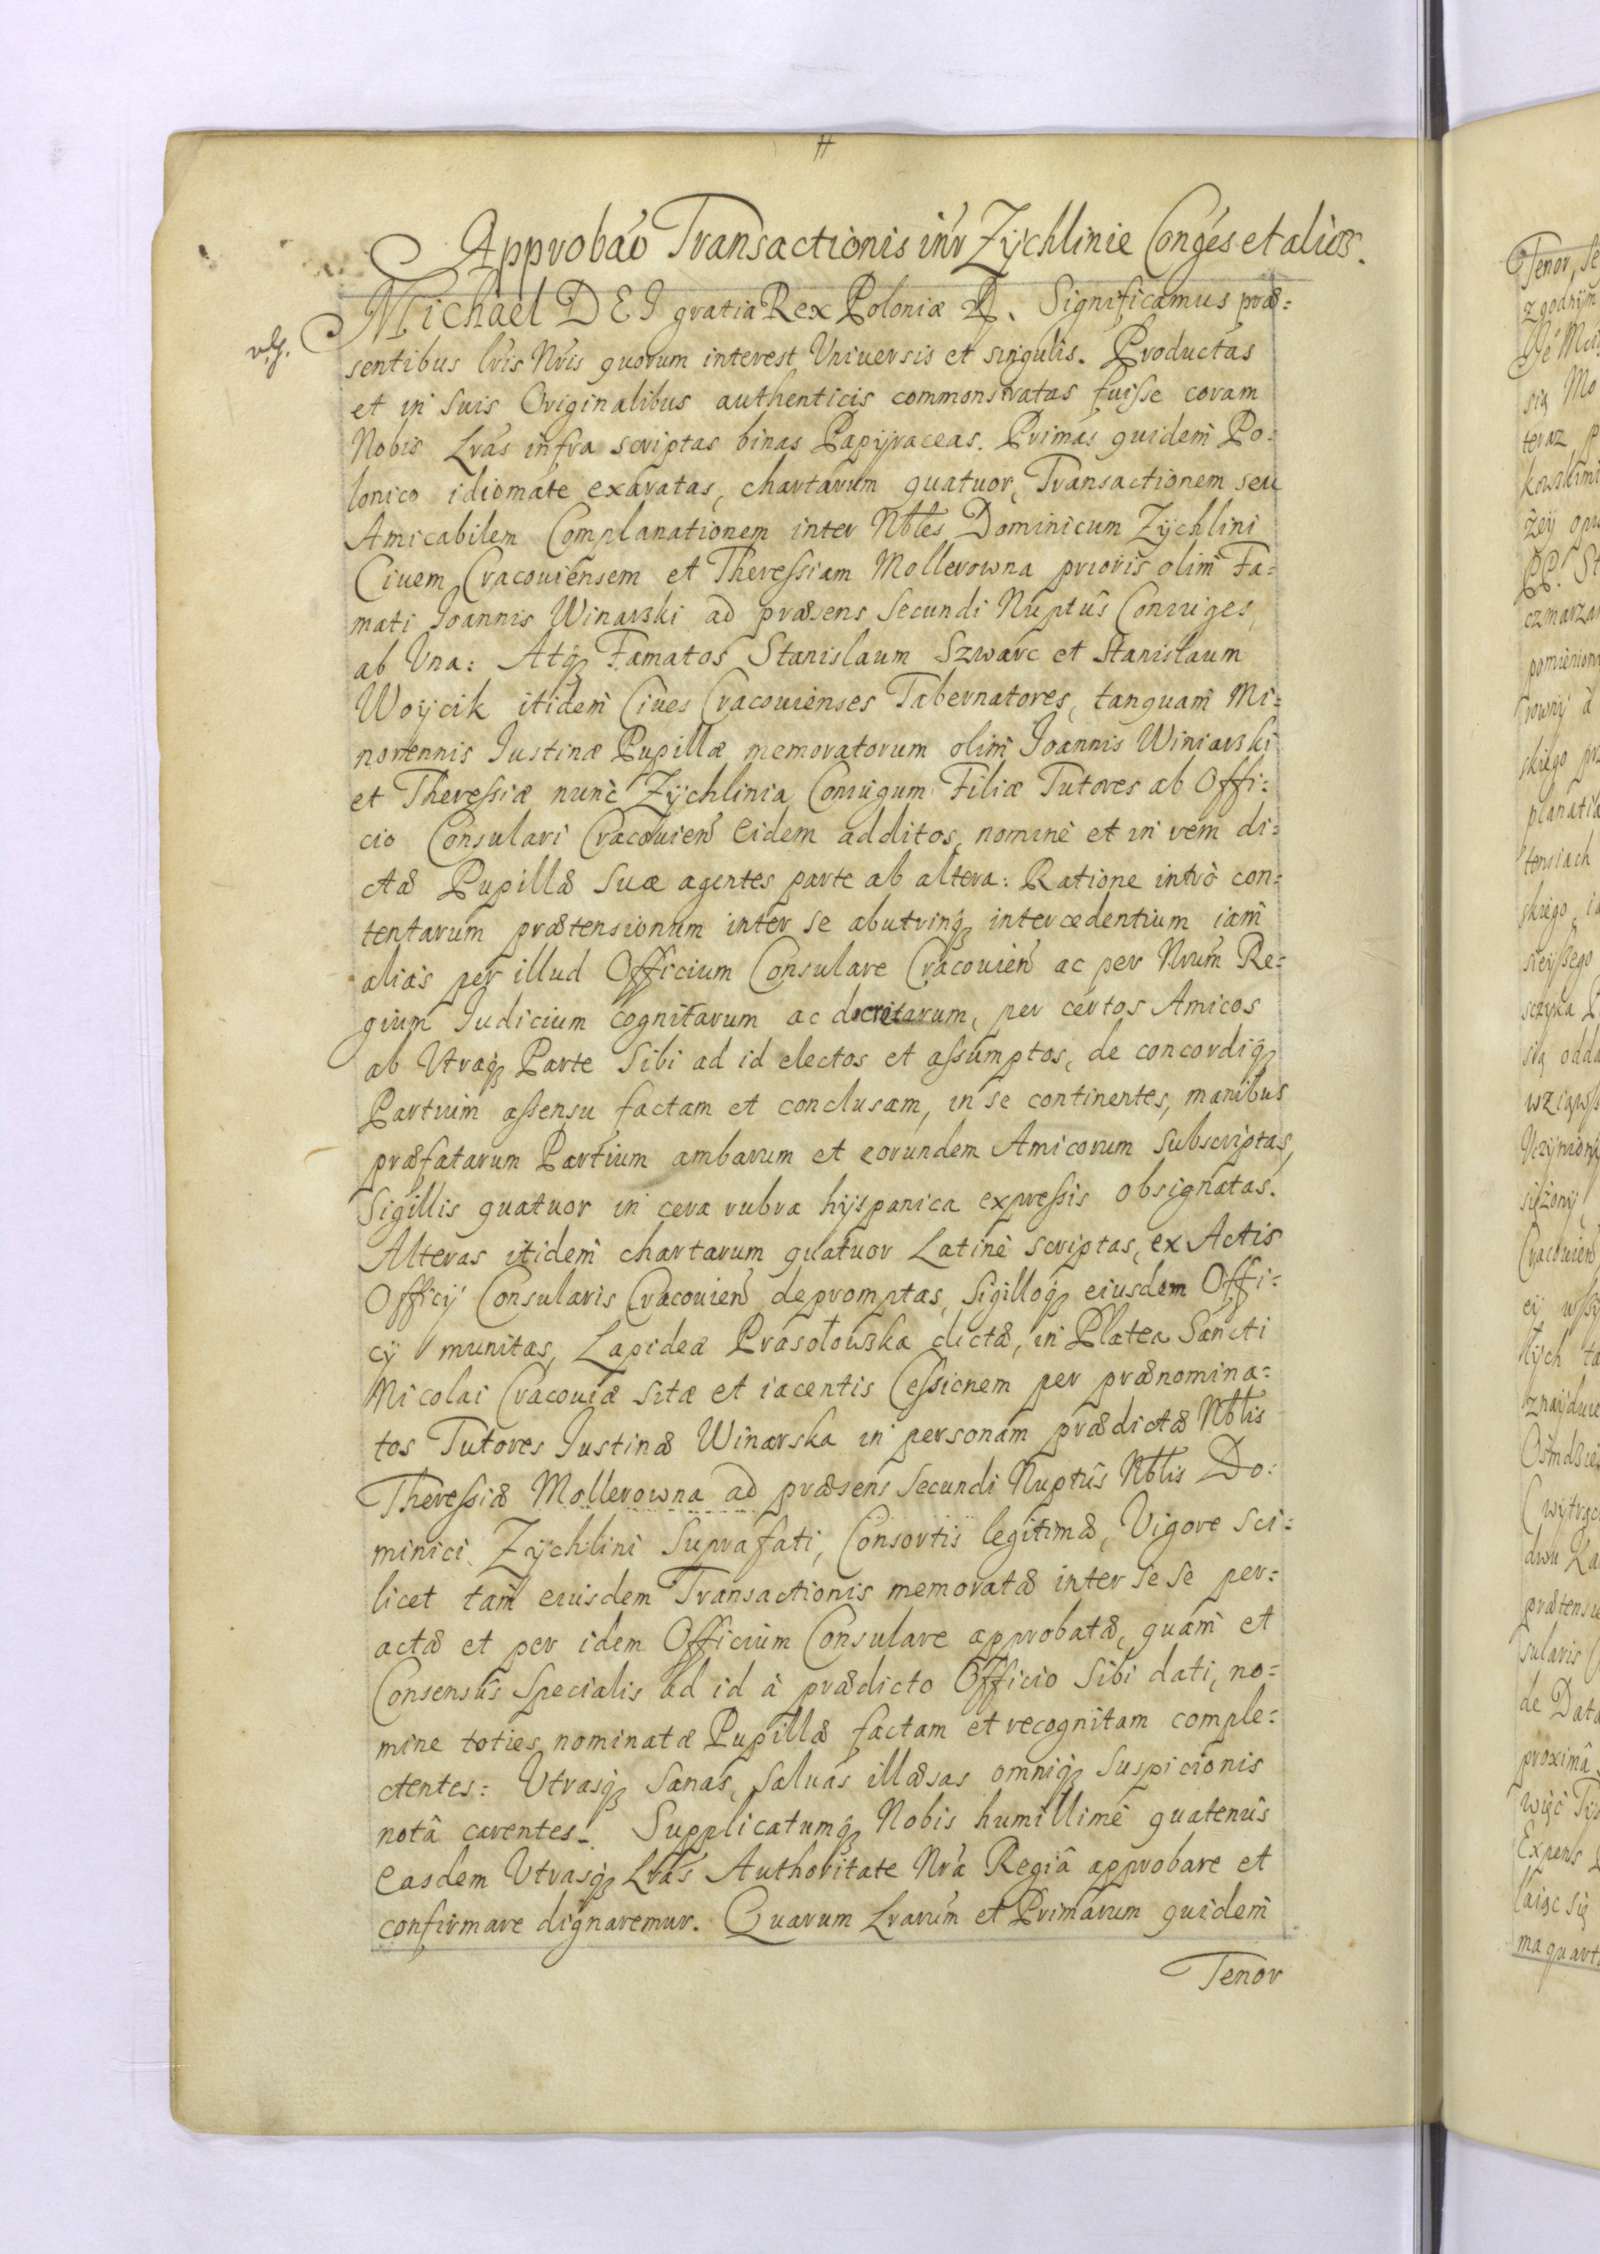 Approbáo Transactionis inr̃ Zÿchlinie Conges et alios.
Michael DEI gratia Rex Poloniæ Significamus præ=
sentibus lris Nris quorum interest Vniuersis et singulis. Productas
et in suis Originalibus authenticis commonstratas fuisse coram
Nobis Lras infra scriptas binas Papÿraceas. Primas quidem Po=
lonico idiomate exaratas, chartarum quatuor, Transactionem seu
Amicabilem Complanationem inter Nbles Dominicum Zÿchlini
Ciuem Cracouiensem et Theressiam Mollerowna prioris olim Fa=
mati Joannis Winarski ad præsens secundi Nuptûs Coniuges,
ab Vna: Atq; Famatos Stanislaum Szwarc et Stanislaum
Woÿcik itidem Ciues Cracouienses Tabernatores, tanquam Mi=
norennis Justinæ Pupillæ memoratorum olim Joannis Winiarski
et Theressiæ nunc Zÿchlinia Coniugum Filiæ Tutores ab Offi=
cio Consulari Cracouien̄ Eidem additos, nomine et in rem di=
ctæ Pupillæ suæ agentes parte ab altera: Ratione intrò con=
tentarum prætensionum inter se abutrinq; intercedentium iam
alias per illud Officium Consulare Cracouien̄ ac per Nrum Re=
gium Iudicium cognitarum ac decretarum, per certos Amicos
ab Utraq; Parte sibi ad id electos et assumptos, de concordiq;
Partium assensu factam et conclusam, in se continentes, manibus
præfatarum Partium ambarum et eorundem Amicorum subscriptas,
Sigillis quatuor in cera rubra hÿspanica expressis obsignatas.
Alteras itidem chartarum quatuor Latinè scriptas, ex Actis
Officÿ Consularis Cracouien̄ depromptas, Sigilloq; eiusdem Offi=
cÿ munitas, Lapideæ Prasołowska dictæ, in Platea Sancti
Nicolai Cracouiæ sitæ et iacentis Cessionem per prænomina=
tos Tutores Justinæ Winarska in personam prædictæ Nblis
Theressiæ Mollerowna ad præsens secundi Nuptûs Nblis Do=
minici Zÿchlini suprafati, Consortis legitimæ, Vigore sci=
licet tam eiusdem Transactionis memoratæ inter se se per=
actæ et per idem Officium Consulare approbatæ, quàm et
Consensûs Specialis ad id à prædicto Officio sibi dati, no=
mine toties nominatæ Pupillæ factam et recognitam comple=
ctentes: Vtrasq; sanas, saluas illæsas omniq; suspicionis
notâ carentes. Supplicatumq; Nobis humillimè quatenûs
easdem Vtrasq; Lras Authoritate Nrâ Regiâ approbare et
confirmare dignaremur. Quarum Lrarum et Primarum quidem
Tenor